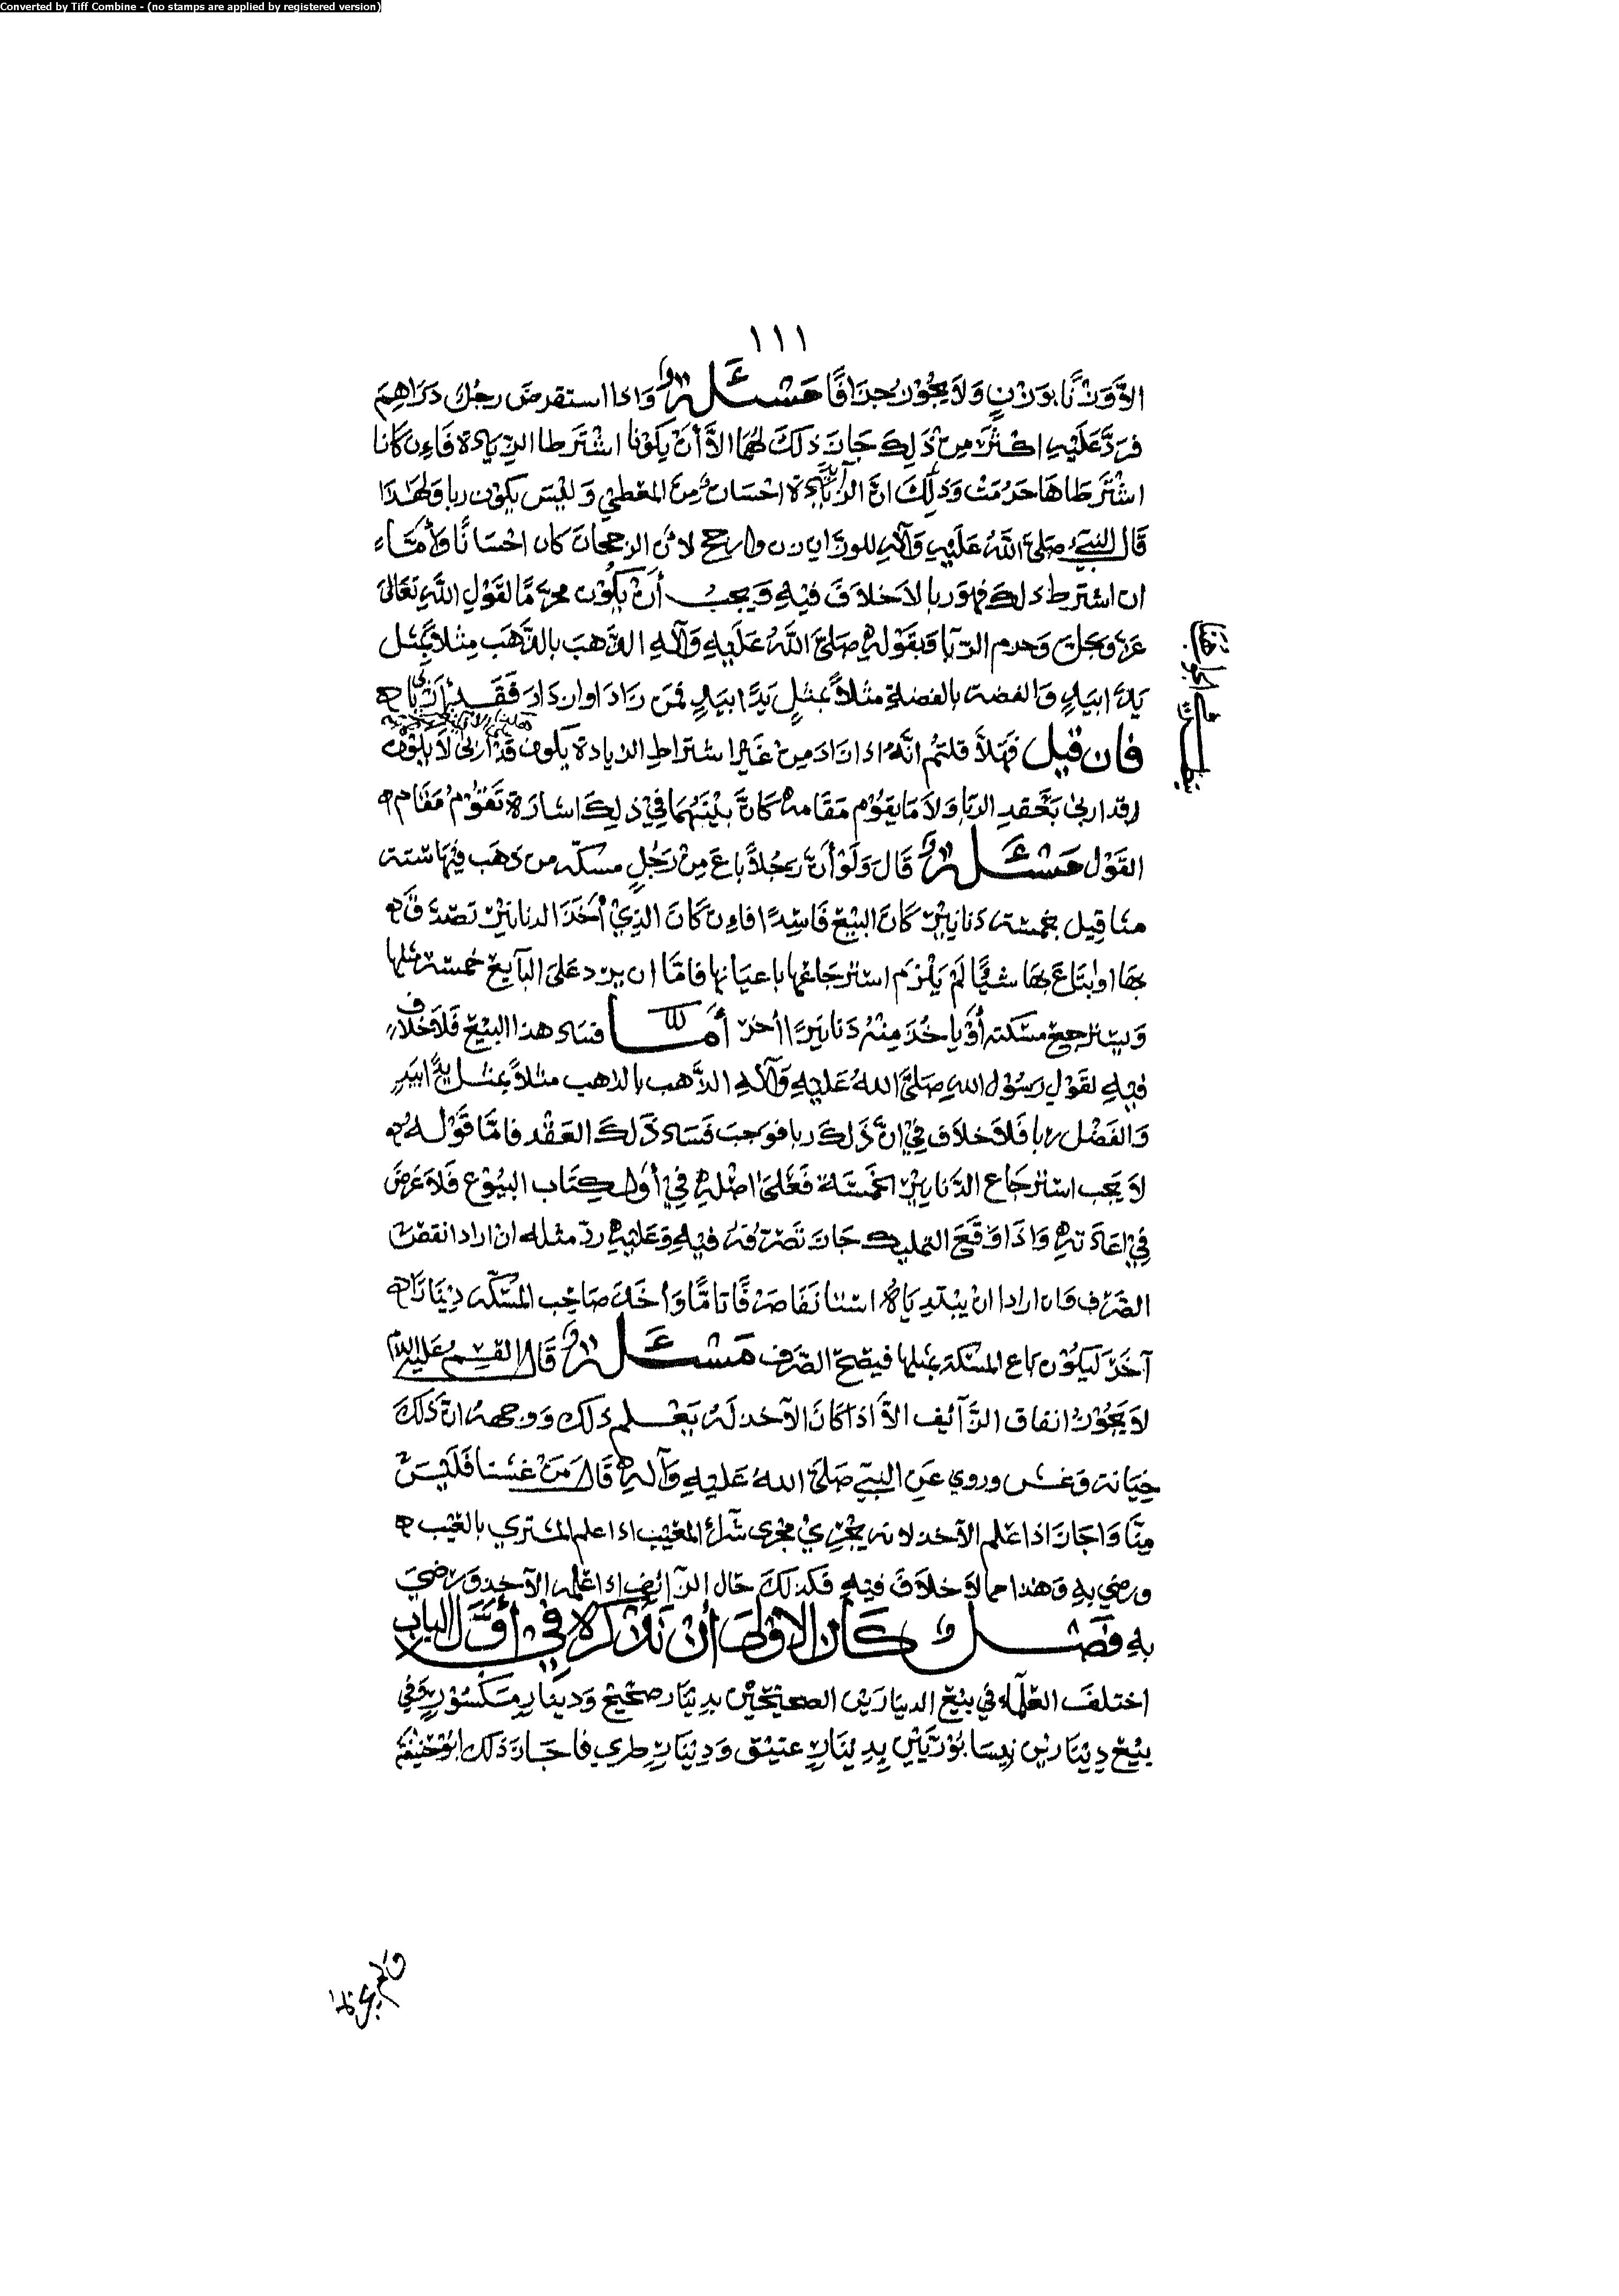 Converted by Tiff Combine - (no stamps are applied by registered version)
١١١
الا وزنا بوزن ولا يجوز جزافا مسئلة واذا استقرض رجل دراهم
فرد عليه اكثر من ذلك جاز ذلك لهما الا أن يكونا اشترطا الزيادة فاءن كانا
اشترطاها حرمت وذلك ان الزيادة احسان من المعطي وليس يكون ربا ولهذا
قال النبي صلى الله عليه وآله للوزان زن وارجح لأن الرجحان كان احسانا وأما
ان اشترط ذلك فهو ربا لا خلاف فيه ويجب أن يكون محرما لقول الله تعالى
عز وجل وحرم الربا وبقوله صلى الله عليه وآله الذهب بالذهب مثلا بمثل
يدا بيد والفضة بالفضة مثلا بمثل يدا بيد فمن زاد او ازداد فقد أربا
فان قيل فهلا قلتم انه اذا زاد من غير اشتراط الزيادة يكون قد أربى لا يكون
قد اربى بعقد الربا ولا ما يقوم مقامه كان بينهما في ذلك اشارة تقوم مقام
القول مسئلة قال ولو أن رجلا باع من رجل مسكة من ذهب فيها ستة
مثاقيل بخمسة دنانير كان البيع فاسدا فاءن كان الذي أخذ الدنانير تصدق
بها او ابتاع بها شيئا لم يلزم استرجاعها باعيانها فاما ان يرد على البآيع خمسة مثلها
ويسترجع مسكته أو ياخذ منه دنانيرا أخر أما فساد هذا البيع فلا خلاف
فيه لقول رسول الله صلى الله عليه وآله الذهب بالذهب مثلا بمثل يدا بيد
والفضل ربا فلا خلاف في ان ذلك ربا فوجب فساد ذلك العقد فاما قوله
لا يجب استرجاع الدنانير الخمسة فعلى اصله في أول كتاب البيوع فلا غرض
في اعادته واذا وقع التمليك جاز تصرفه فيه وعليه رد مثله ان اراد انقض
الصرف فان ارادا ان يبتدياه استانفا صرفا تاما وأخذ صاحب المسكة دينارا
آخر ليكون باع المسكة بمثلها فيصح الصرف مسئلة قال القسم عليه السلام
لا يجوز انفاق الزآئف الا اذا كان الآخذ له يعلم ذلك ووجهه ان ذلك
خيانة وغش وروي عن النبي صلى الله عليه وآله قال من غشنا فليس
منا واجاز اذا علم الآخذ لانه يجري مجرى شرآء المعيب اذا علم المشتري بالعيب
ورضي به وهذا مما لا خلاف فيه فكذلك حال الزآئف اذا علمه الآخذ ورضي
به فصل كان الاولى أن نذكره في أول الباب
اختلف العلمآء في بيع الدينارين الصحيحين بدينار صحيح ودينار مكسور وفي
بيع دينارين نيسابوريين بدينار عتيق ودينار طري فاجاز ذلك ابو حنيفة